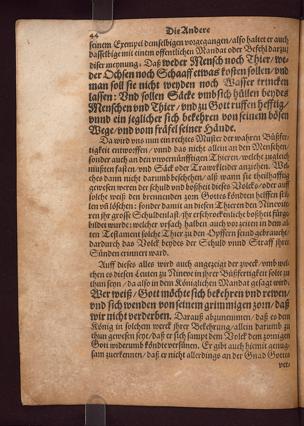 44 Die Andere
seinem Exempel demselbigen vorgegangen/also haltet er auch
dasselbige mit einem offentlichen Mandat oder Befehl darzu;
diser meynung. Daß weder Mensch noch Thier/ we-
der Ochsen noch Schaaff etwas kosten sollen/ vnd
man soll sie nicht weyden noch Wasser trincken
lassen: Vnd sollen Säcke vmb sich hüllen beydes
Menschen vnd Thier/ vnd zu Gott ruffen hefftig/
vnnd ein jeglicher sich bekehren von seinem bösen
Wege/ vnd vom fräfel seiner Hände.
Da wird vns nun ein rechtes Muster der wahren Büßfer-
tigkeit entworffen/ vnnd das nicht allein an den Menschen/
sonder auch an den vnvernünfftigen Thieren/ welche zugleich
müsten fasten/ vnd Säck oder Trawrkleider anziehen. Wel-
ches dann nicht darumb beschehen/ als wann sie theilhafftig
gewesen weren der schuld vnd boßheit dieses Volcks/ oder auff
solche weiß den brennenden zorn Gottes hetten helffen stil-
len vñ löschen: sonder damit an diesen Thieren den Ninevite-
ren ihr grosse Schuldenlast/ ihr erschrockenliche boßheit fürge-
bildet wurde: welcher vrsach halben auch vor zeiten in dem al-
ten Testament solche Thier zu den Opffern sind gebraucht/
dardurch das Volck beydes der Schuld vnnd Straff ihrer
Sünden erinnert ward.
Auff dieses alles wird auch angezeigt der zweck/ vmb wel-
chen es diesen Leuten zu Ninive in ihrer Büßfertigkeit solte zu
thun seyn/ da also in dem Königlichen Mandat gesagt wird:
Wer weiß/ Gott möchte sich bekehren vnd rewen/
vnd sich wenden von seinem grimmigen zorn/ daß
wir nicht verderben. Darauß abzunemmen/ daß es dem
König in solchem werck ihrer Bekehrung/ allein darumb zu
thun gewesen seye/ daß er sich sampt dem Volck dem zornigen
Gott widerumb köndte versünen. Er gibt auch hiemit genug-
sam zuerkennen/ daß er nicht allerdings an der Gnad Gottes
ver/